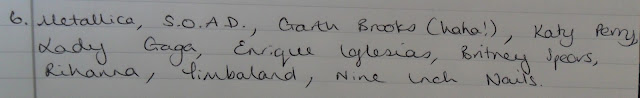 6. Metallica, S.O.A.D., Garth Brooks (haha!), Katy Perry,
Lady Gaga, Enrique Iglesias, Britney Spears,
Rihanna, Timbaland, Nine Inch Nails.